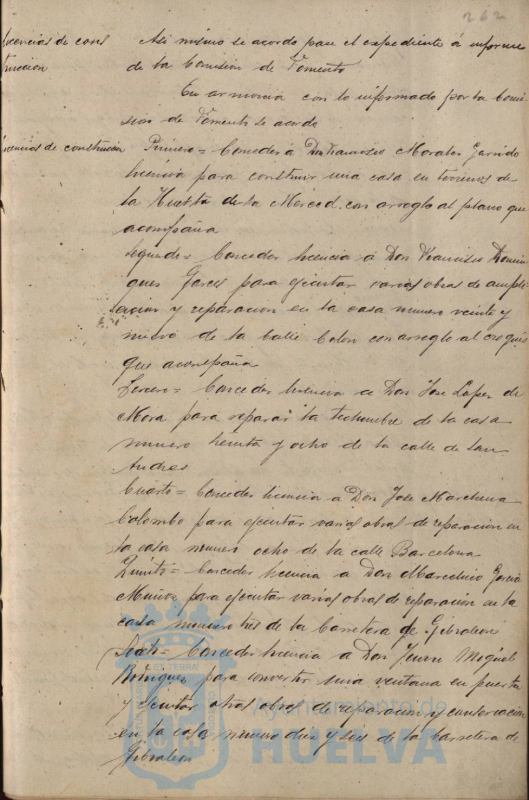 262
licencias de cons
truccion
Asi mismo se acordo pase el expediente á informe
de la Comision de Fomento
En armonia con lo informado por la Comi
sion de Fomento se acordo
licencias de construccion
Primero = Conceder á Don Francisco Morales Garrido
licencia para construir una casa en terrenos de
la Huerta de la Merced con arreglo al plano que
acompaña
Segundo = Conceder licencia á Don Francisco Domin
guez Garces para ejecutar varias obras de ampli
acion y reparacion en la casa numero veinte y
nueve de la calle Colon con arreglo al croquis
que acompaña
Tercero = Conceder licencia a Don Jose Lopez de
Mora para reparar la techumbre de la casa
numero treinta y ocho de la calle de San
Andres
Cuarto = Conceder licencia a Don Jose Marchena
Colombo para ejecutar varias obras de reparacion en
la casa numero ocho de la calle Barcelona
Quinto = Conceder licencia a Don Marcelino Garcia
Muñoz para ejecutar varias obras de reparacion en la
casa numero tres de la Carretera de Gibraleon
Sexto = Conceder licencia a Don Juan Miguel
para convertir una ventana en puerta
y ejecutar otras obras de reparacion y conservacion
en la casa numero diez y seis de la Carretera de
Gibraleon
Ayuntamiento de
HUELVA